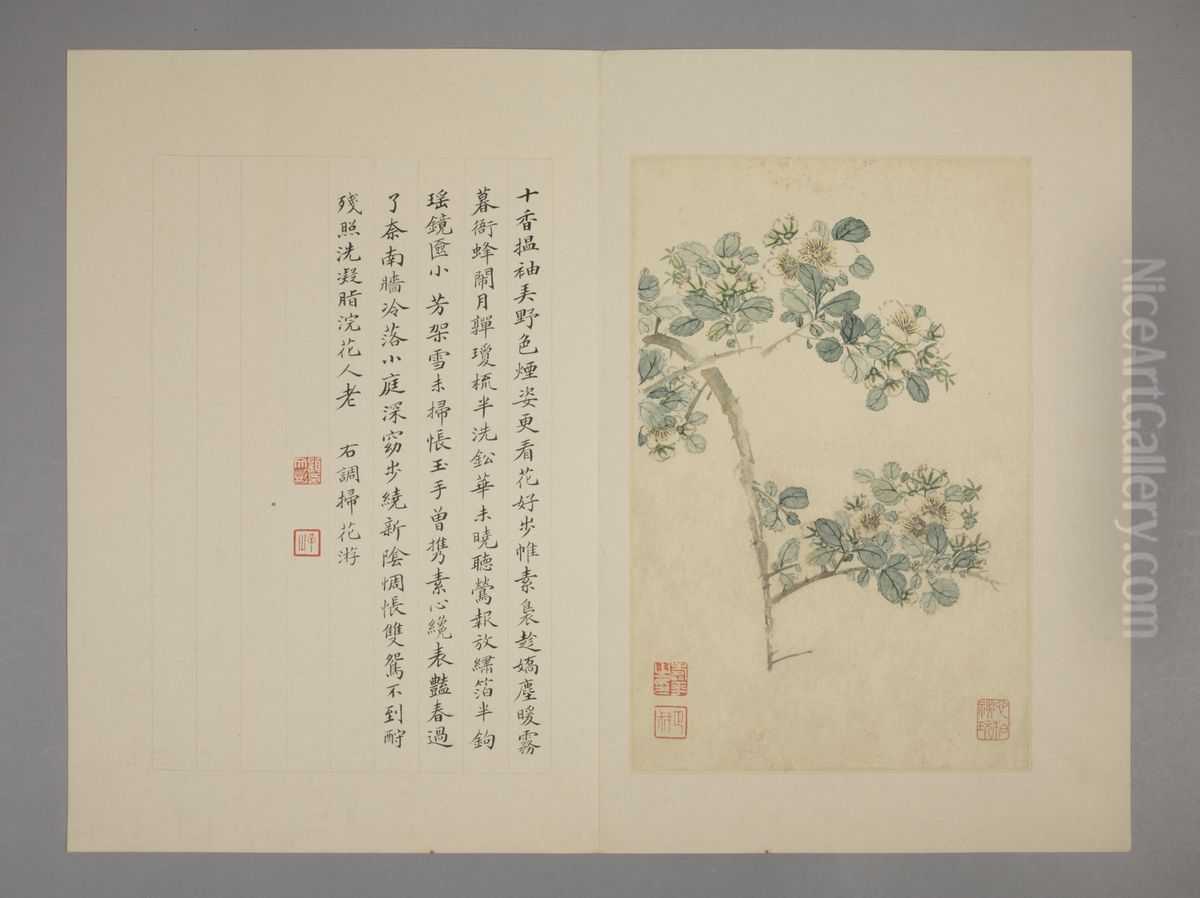 十香揾袖美野色煙姿更看花好步帷素裊趁嬌塵暖霧
暮衙蜂鬧月嚲瓊梳半洗鈆華未曉聽鶯報放繡箔半鉤
瑶鏡匳小芳架雪未掃悵玉手曽携素心纔表豔春過
了奈南牆冷落小庭深窈步繞新陰惆悵雙鴛不到酹
殘照洗凝脂浣花人老
右調掃花游
NiceArtGallery.com